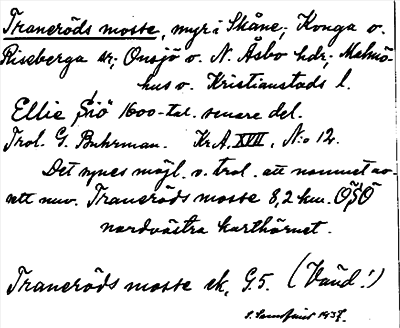 Traneröds mosse, myr i Skåne; Konga o.
Riseberga sr; Onsjö o. N. Åsbo hdr; Malmö-
hus o. Kristianstads l.
Ellie Siö 1600-tal. senare del.
Trol. G. Buhrman. Kr.A. XVII, N:o 12.
Det synes möjl. o. trol. att namnet av-
sett nuv. Traneröds mosse 8,2 km. ÖSÖ
nordvästra karthörnet.
Traneröds mosse ek. G.5. (Vånd!)
1937.